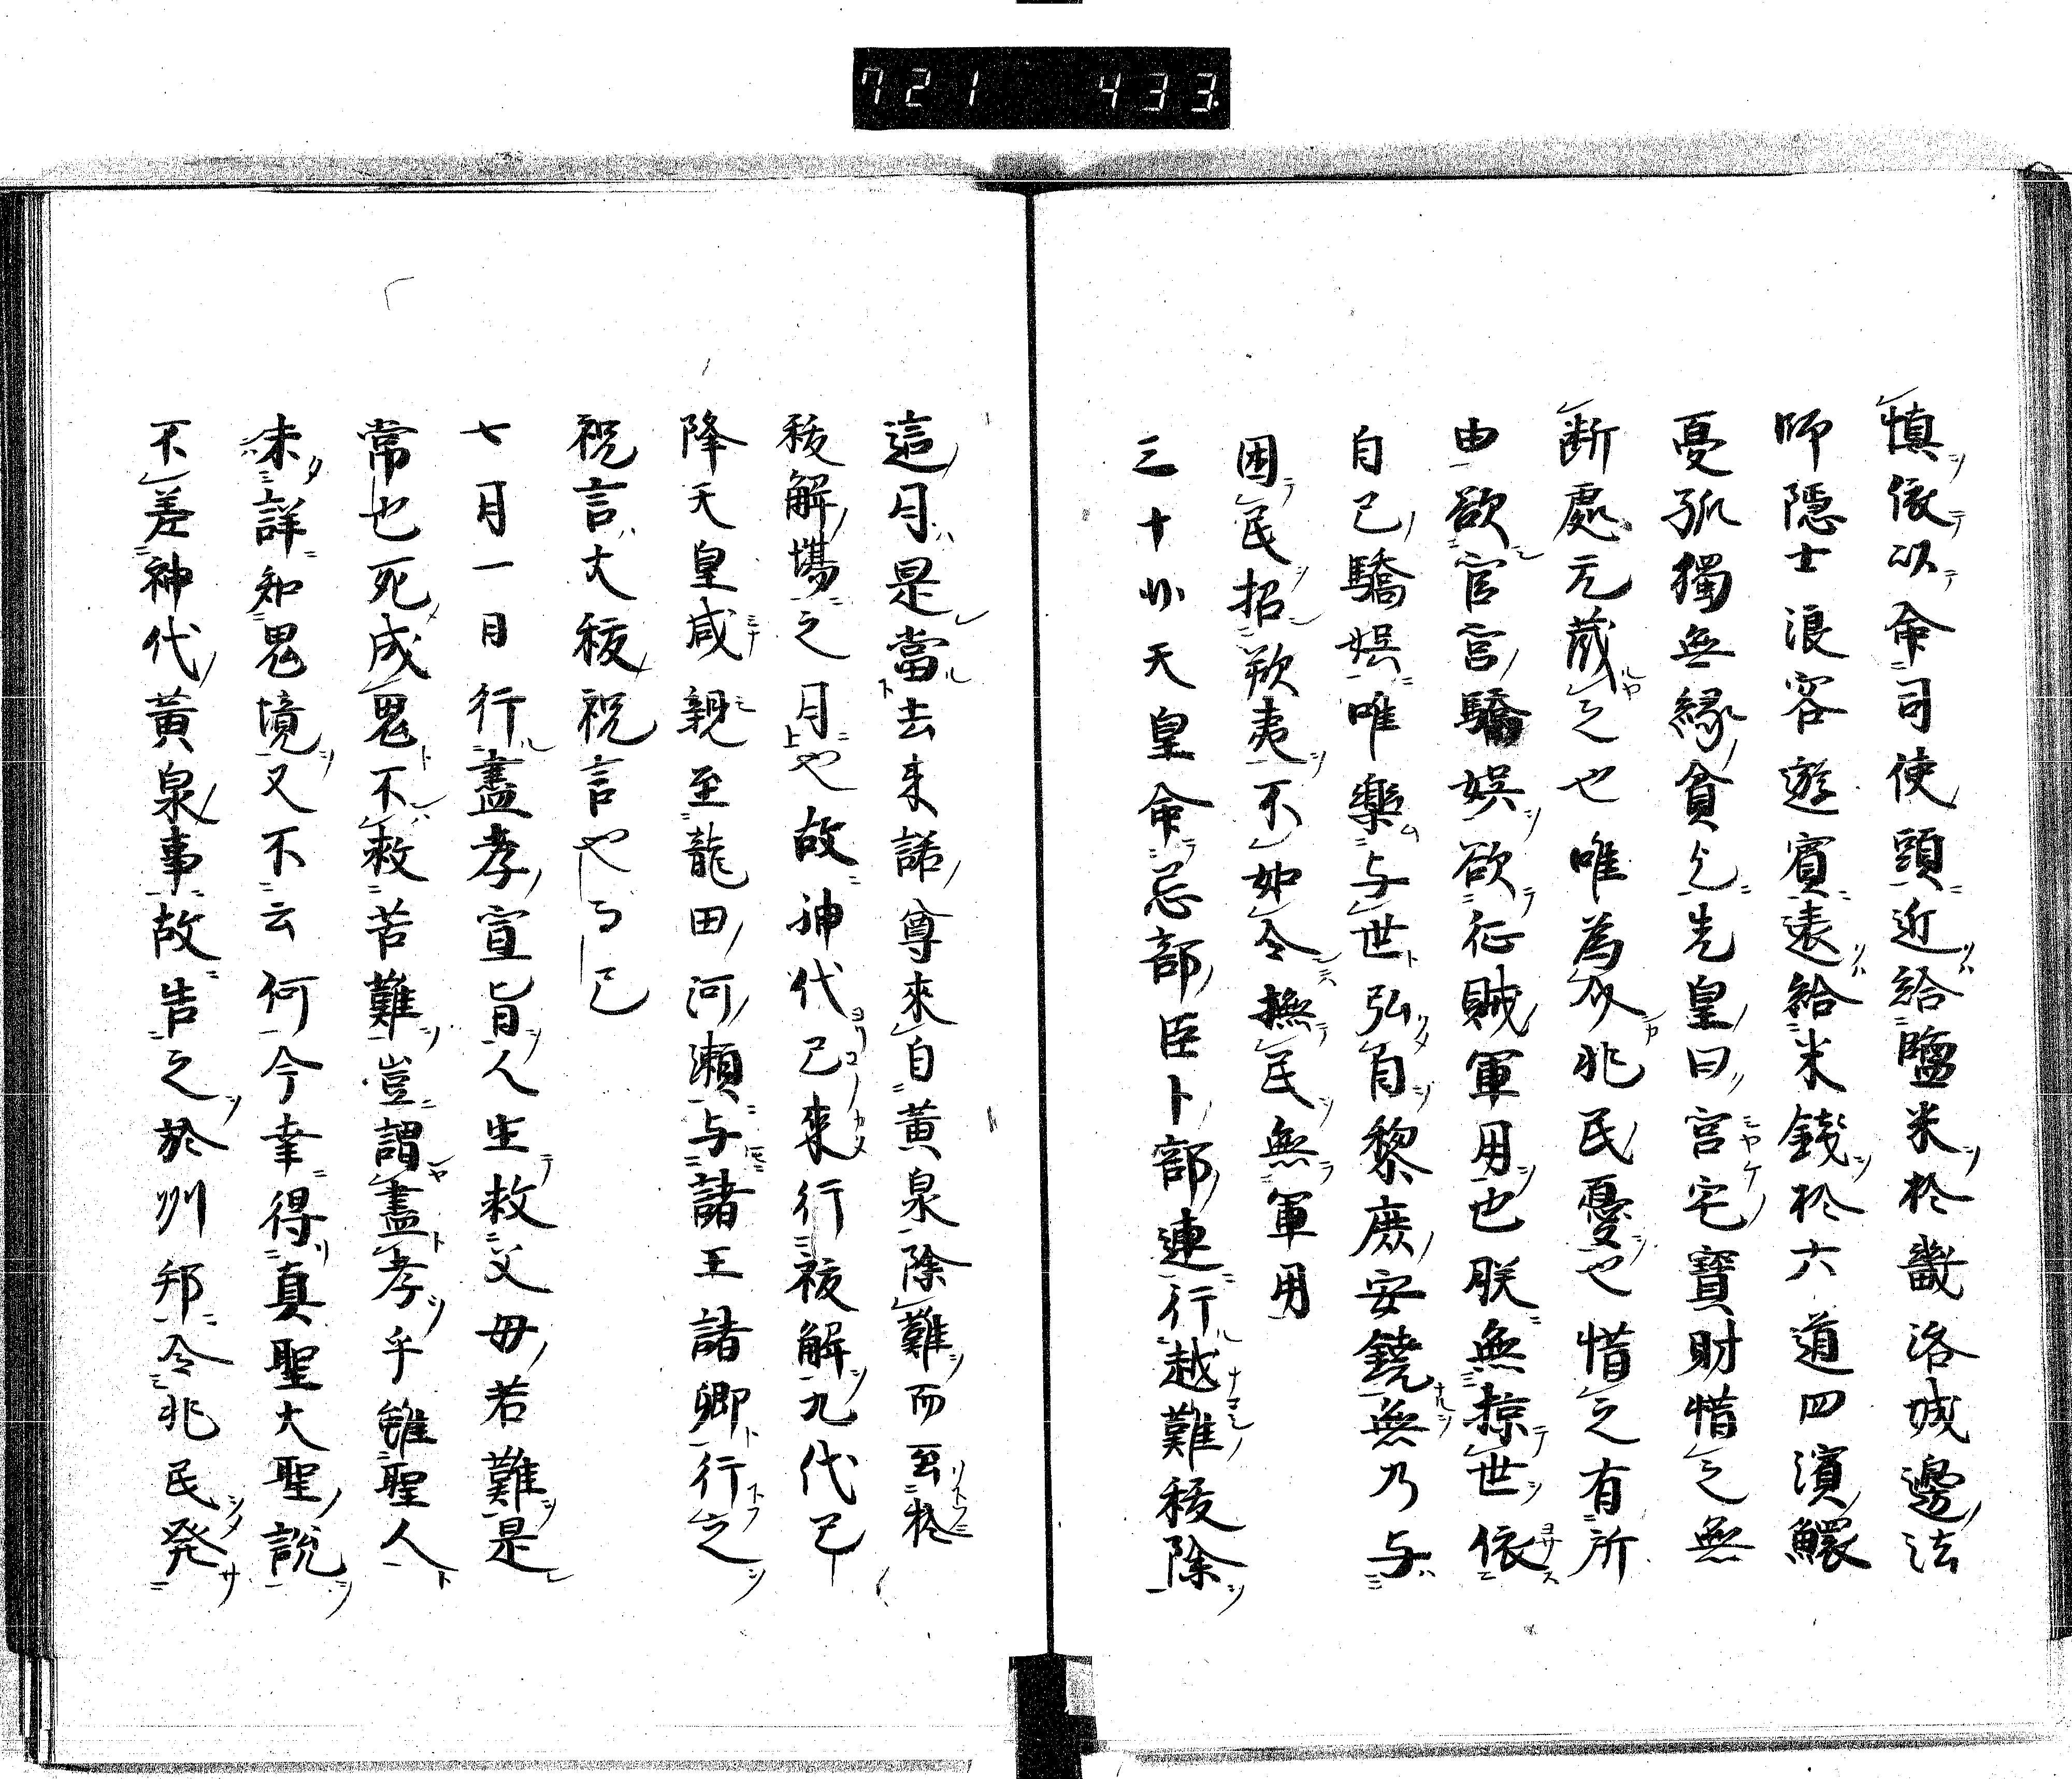 721 433
慎依以命司使頭近給鹽米於畿洛城邊法
師隱士浪客遊賓遠給米錢於六道四濱鰥
憂孤獨無緣貧乞先皇曰宮宅寶財惜之無
断處元蔵之也唯為救兆民憂也惜之有所
由欲官宮驕娯欲征賊軍用也朕無掠世依
自己驕娯唯樂与世弘育黎庶安饒無乃与
困民招歎夷不如令撫民無軍用
三十 天皇命忌部臣卜部連行越難祓除
這月是當去来諾尊來自黃泉除難而至於
祓解場之月也故神代已來行祓解九代已
降天皇咸親至龍田河瀬与諸王諸卿行之
祝言大祓祝言也 已
七月一日行盡孝宣旨人生救父母若難是
常也死成鬼不救苦難豈謂盡孝乎雖聖人
未詳知鬼境又不云何今幸得真聖大聖說
不差神代黃泉事故告之於州邦令兆民発